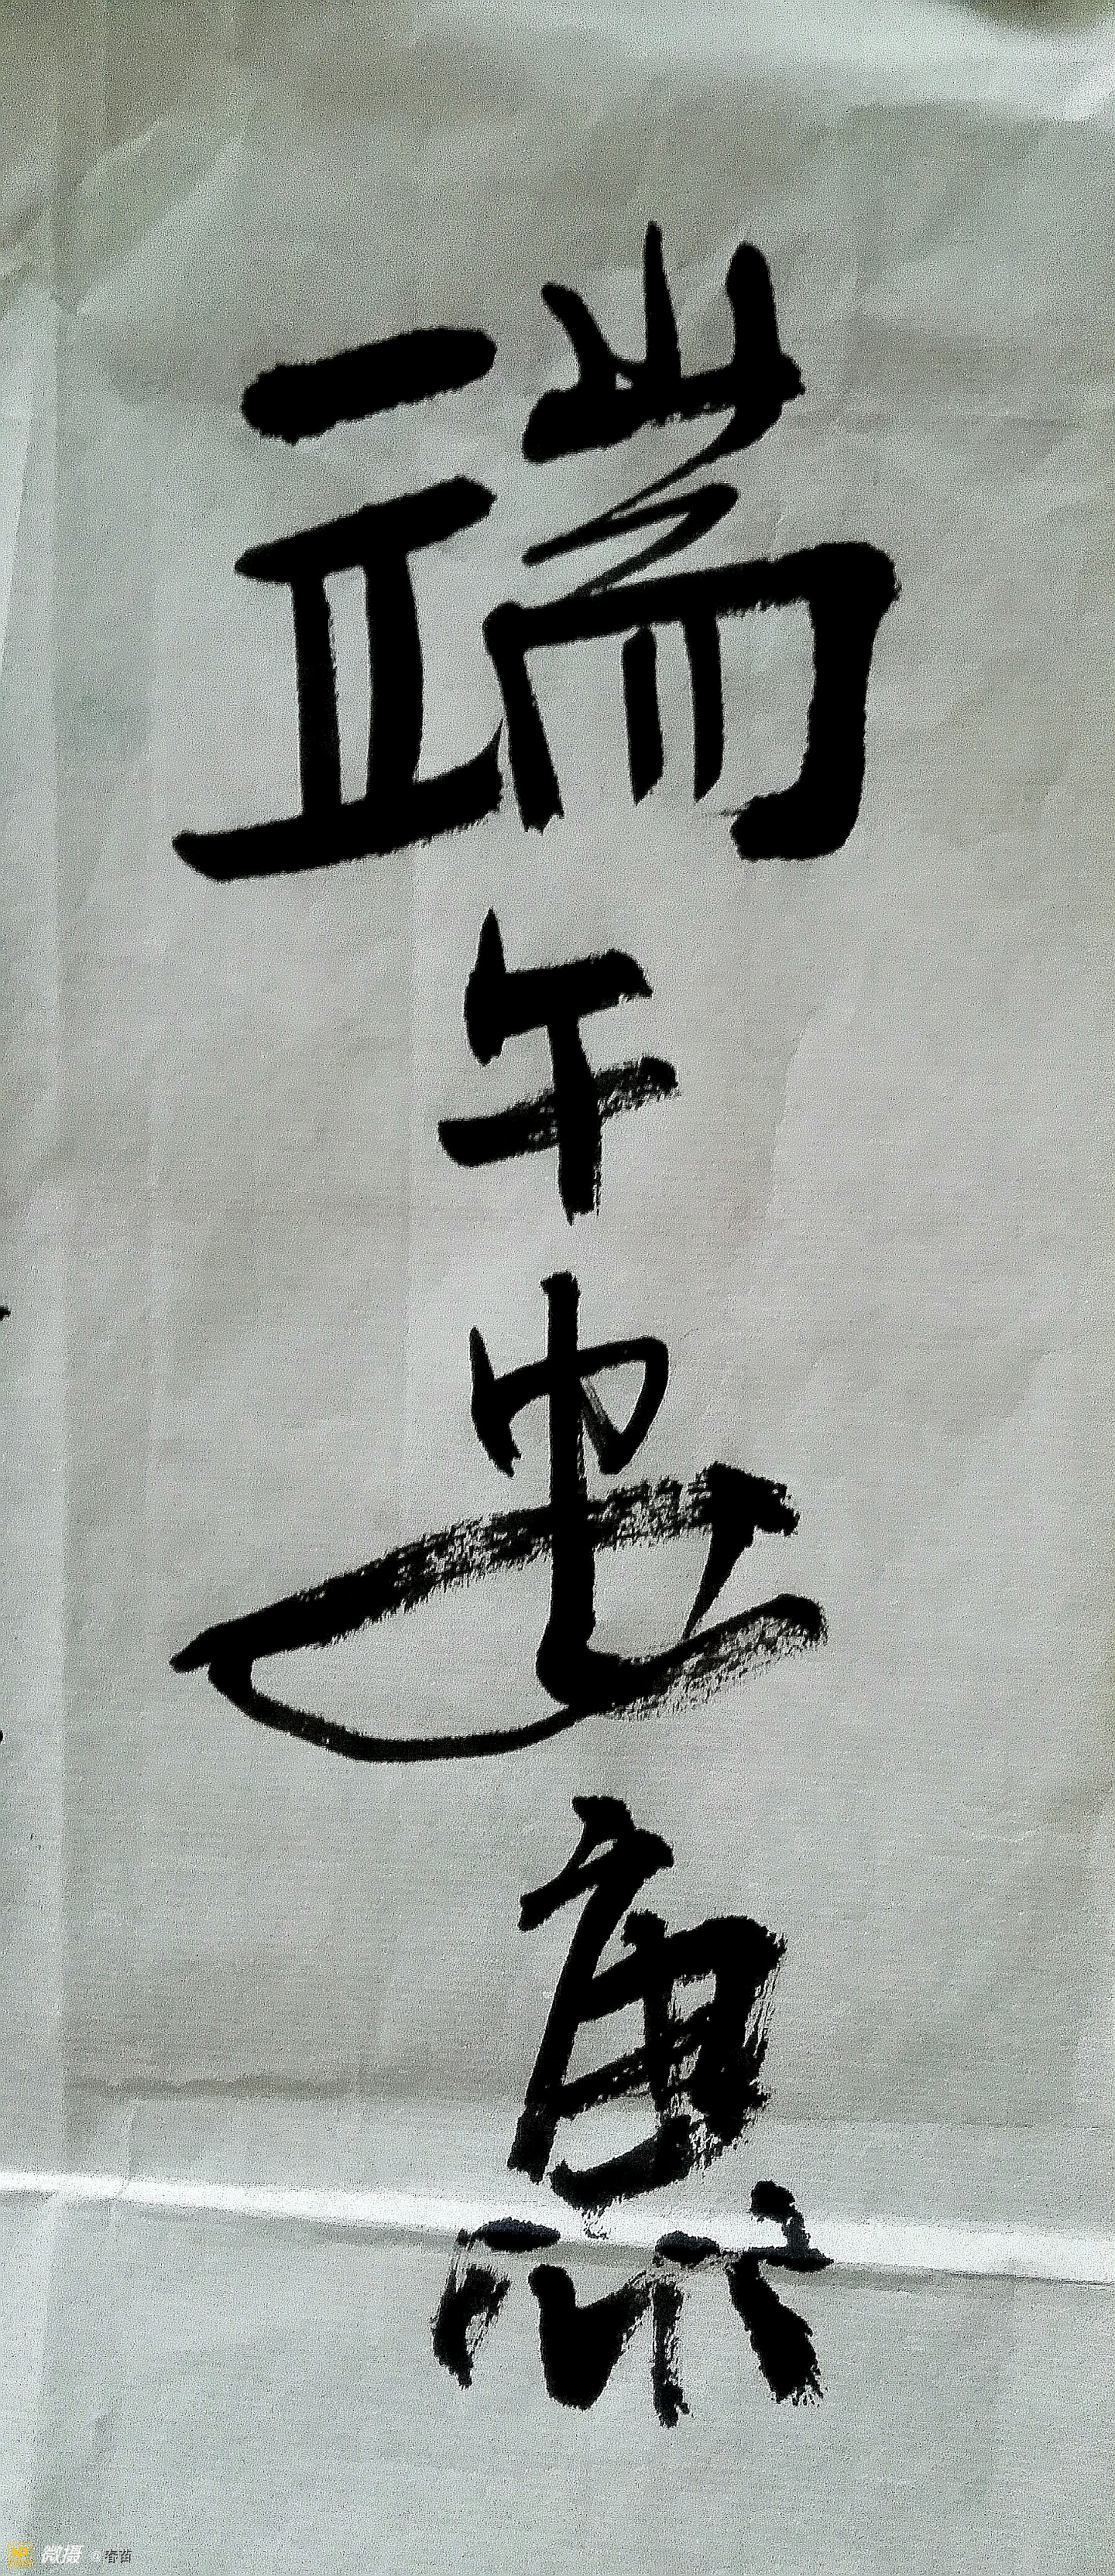 端午安康
微摄 ©春苗